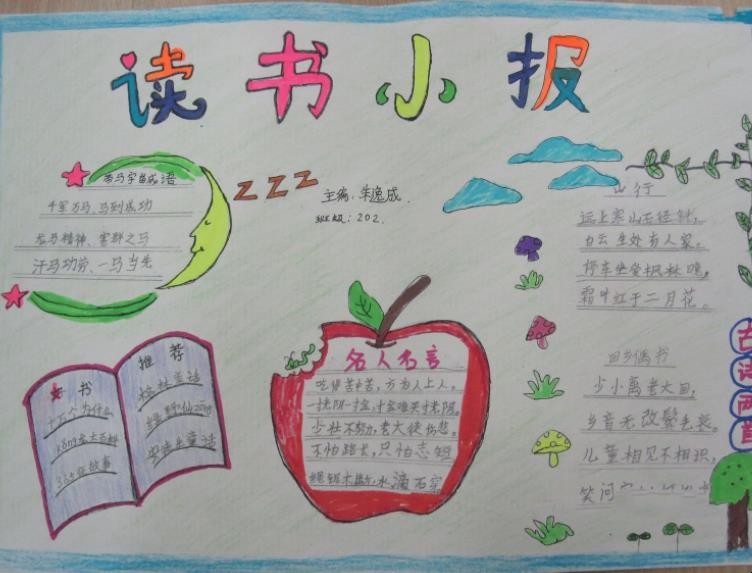 读书小报
带马字的成语
千军万马、马到成功
龙马精神、害群之马
汗马功劳、一马当先
zzz
主编:朱逸成
班级:202
山行
远上寒山石径斜,
白云生处有人家。
停车坐爱枫林晚,
霜叶红于二月花。
名人名言
吃得苦中苦,方为人上人。
一寸光阴一寸金,寸金难买寸光阴。
少壮不努力,老大徒伤悲。
不怕路长,只怕志短
绳锯木断,水滴石穿
书
十万个为什么
365夜故事
推荐
格林童话
安徒生童话
古诗两首
回乡偶书
少小离老大回,
乡音无改鬓毛衰。
儿童相见不相识,
笑问